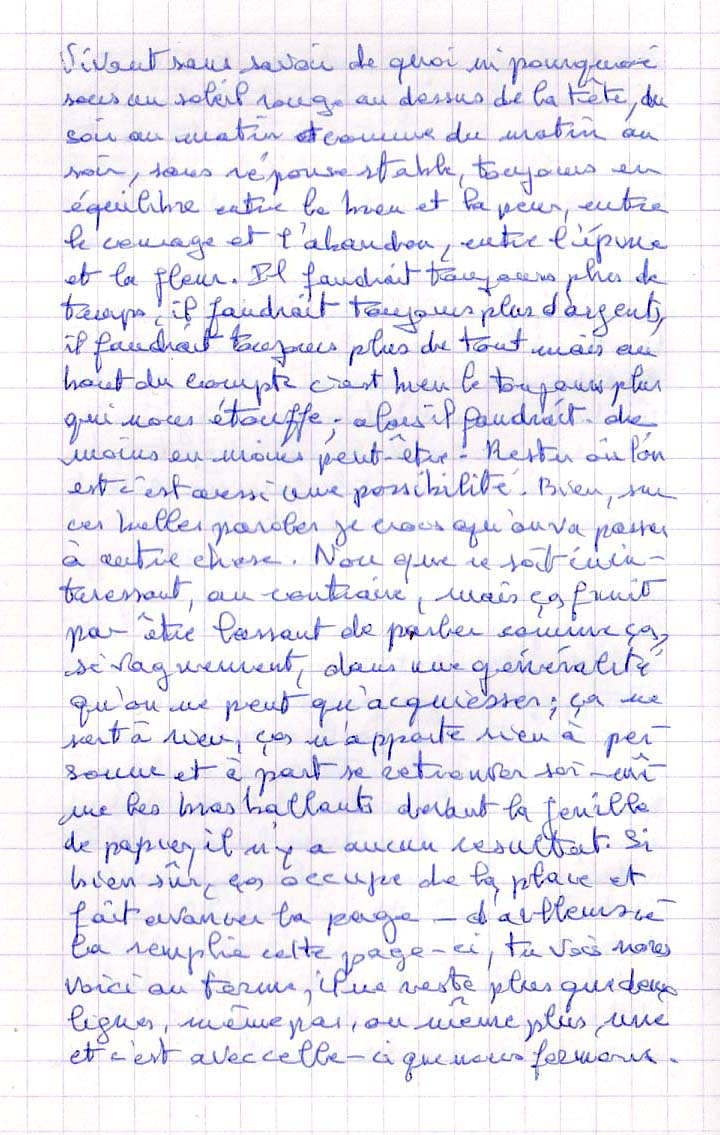 Vivant sans savoir de quoi ni pourquoi
sous un soleil rouge au dessus de la tête, du
soir au matin et comme du matin au
soir, sans réponse stable, toujours en
équilibre entre le bien et la peur, entre
le courage et l'abandon, entre l'épine
et la fleur. Il faudrait toujours plus de
temps, il faudrait toujours plus d'argent,
il faudrait toujours plus de tout mais au
bout du compte c'est bien le toujours plus
qui nous étouffe; alors il faudrait de
moins en moins peut-être. Rester où l'on
est c'est aussi une possibilité. Bien, sur
ces belles paroles je crois qu'on va passer
à autre chose. Non que ce soit inin-
téressant, au contraire, mais ça finit
par être lassant de parler comme ça,
si vaguement, dans une généralité
qu'on ne peut qu'acquiesser; ça ne
sert à rien, ça n'apporte rien à per-
sonne et à part se retrouver soi-mê-
me les bras ballants devant la feuille
de papier, il n'y a aucun resultat. Si
bien sûr, ça occupe de la place et
fait avancer la page - d'ailleurs
la remplie cette page-ci, tu vois nous
voici au terme, il ne reste plus que deux
lignes, même pas, ou même plus, une
et c'est avec celle-ci que nous fermons.